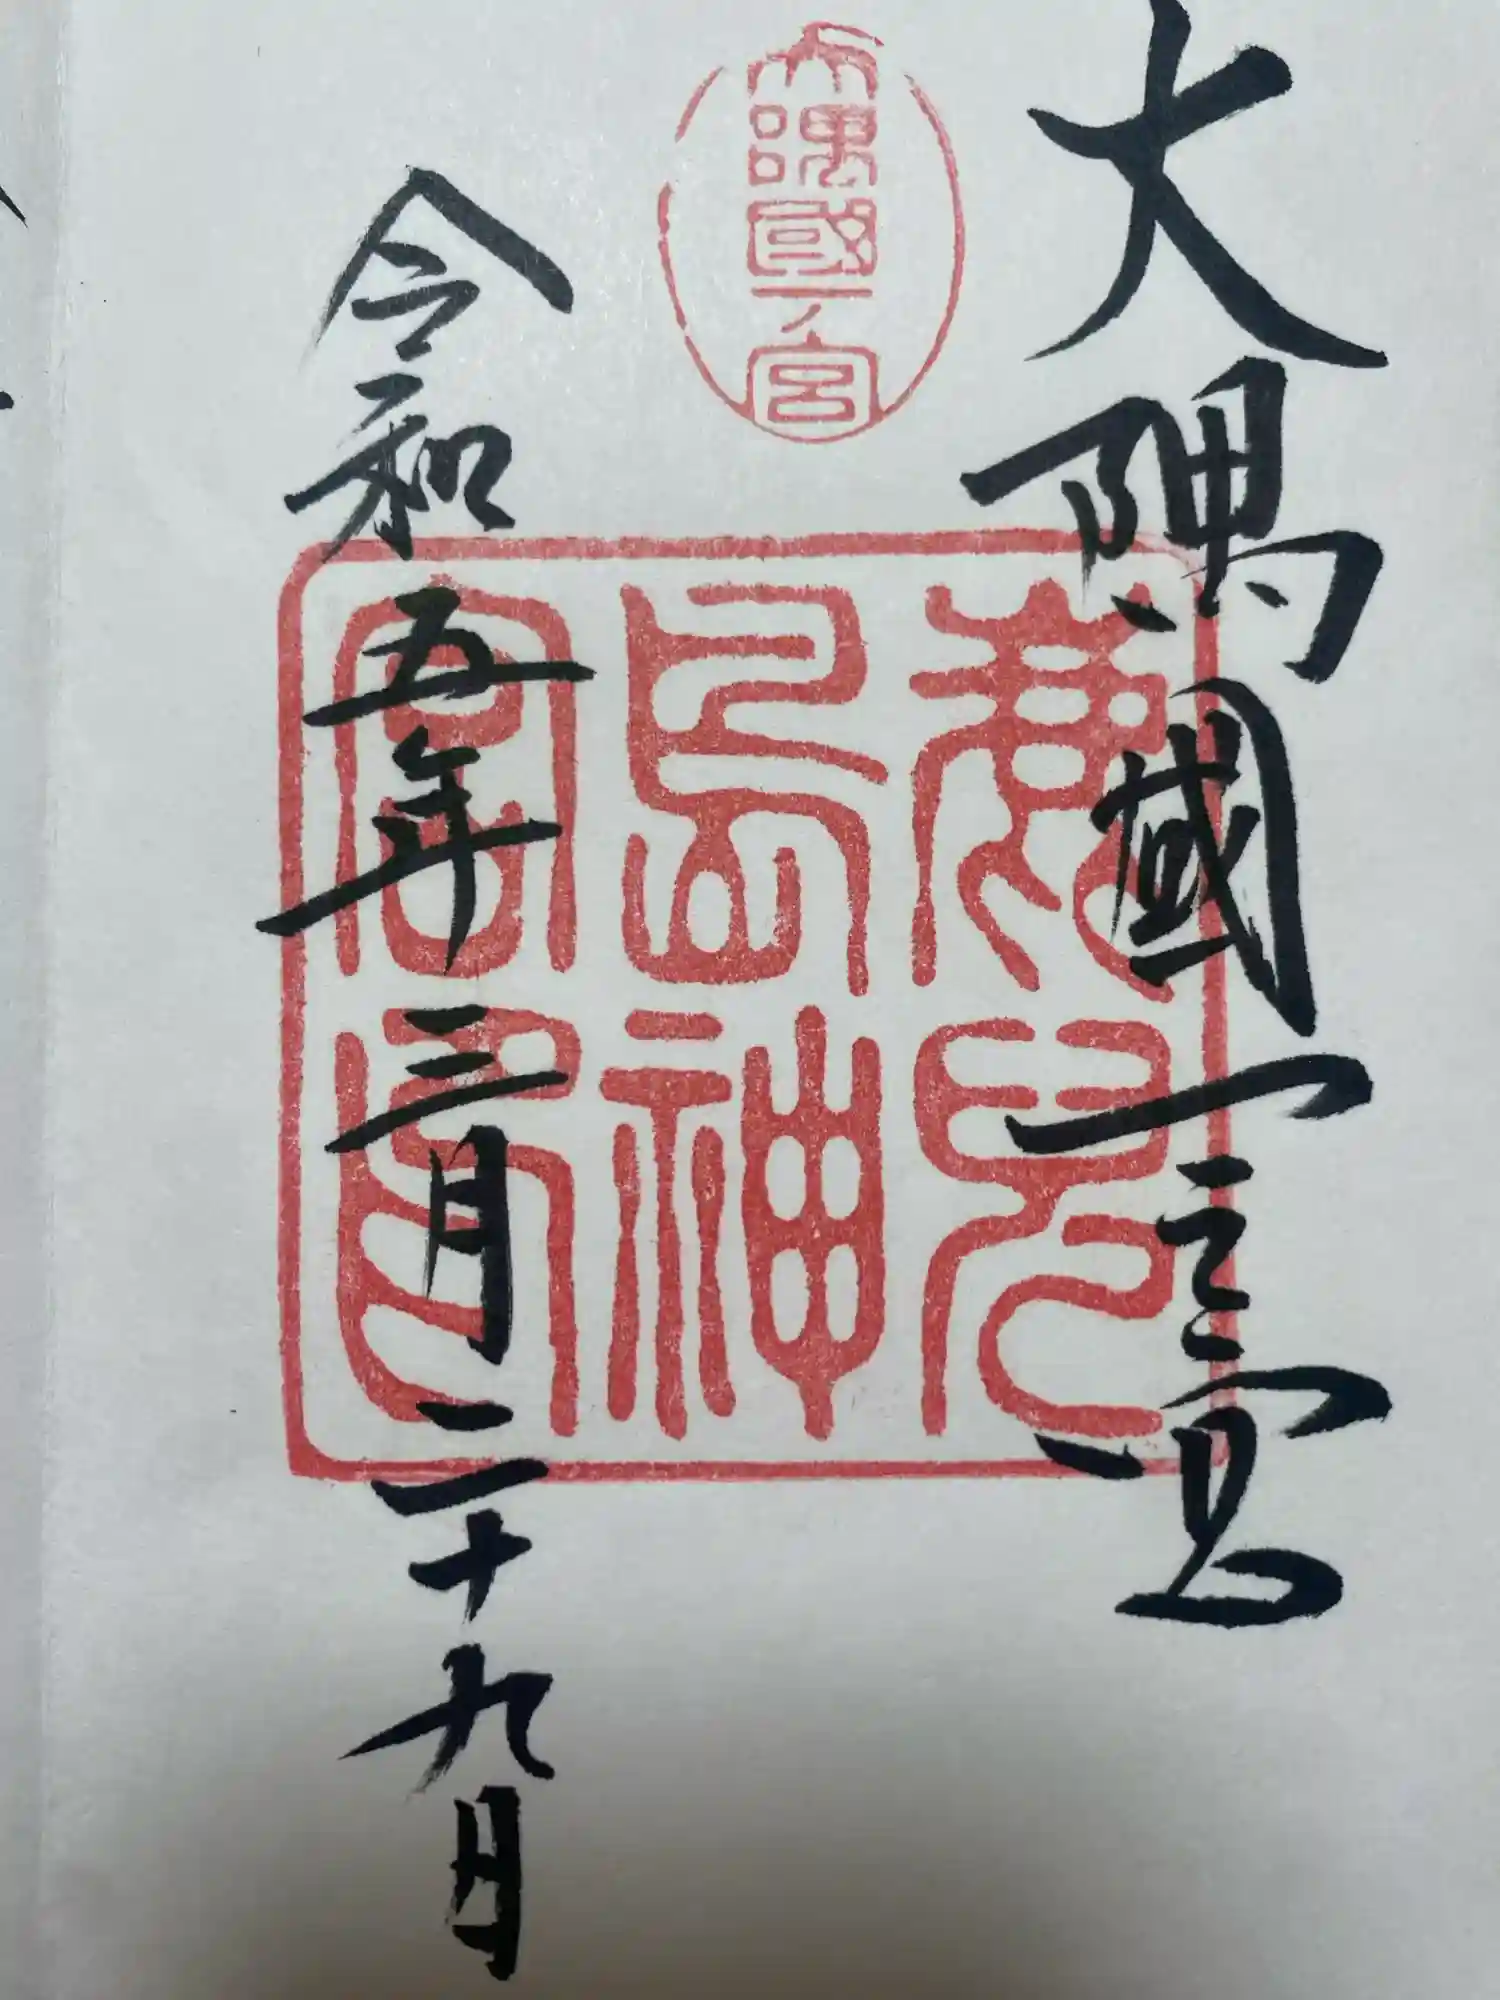 大隅國一之宮
大隅國一ノ宮
鹿兒
島神
宮印
令和五年三月二十九日